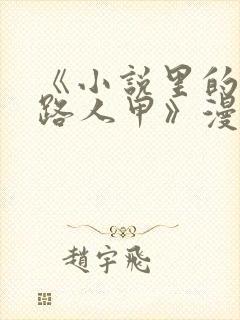 《小说里的
路人甲》漫
趙宇飛